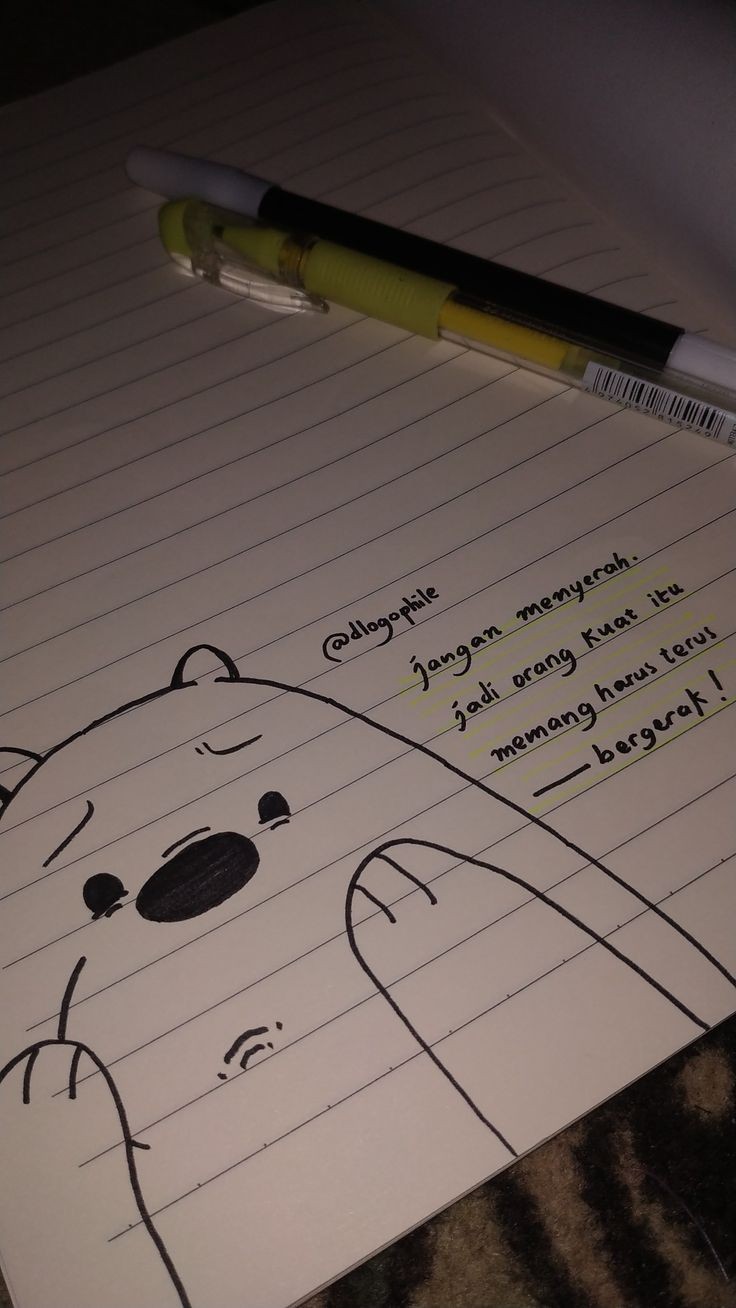 4974052815249
@dlogophile
jangan menyerah.
jadi orang kuat itu
memang harus terus
— bergerak!